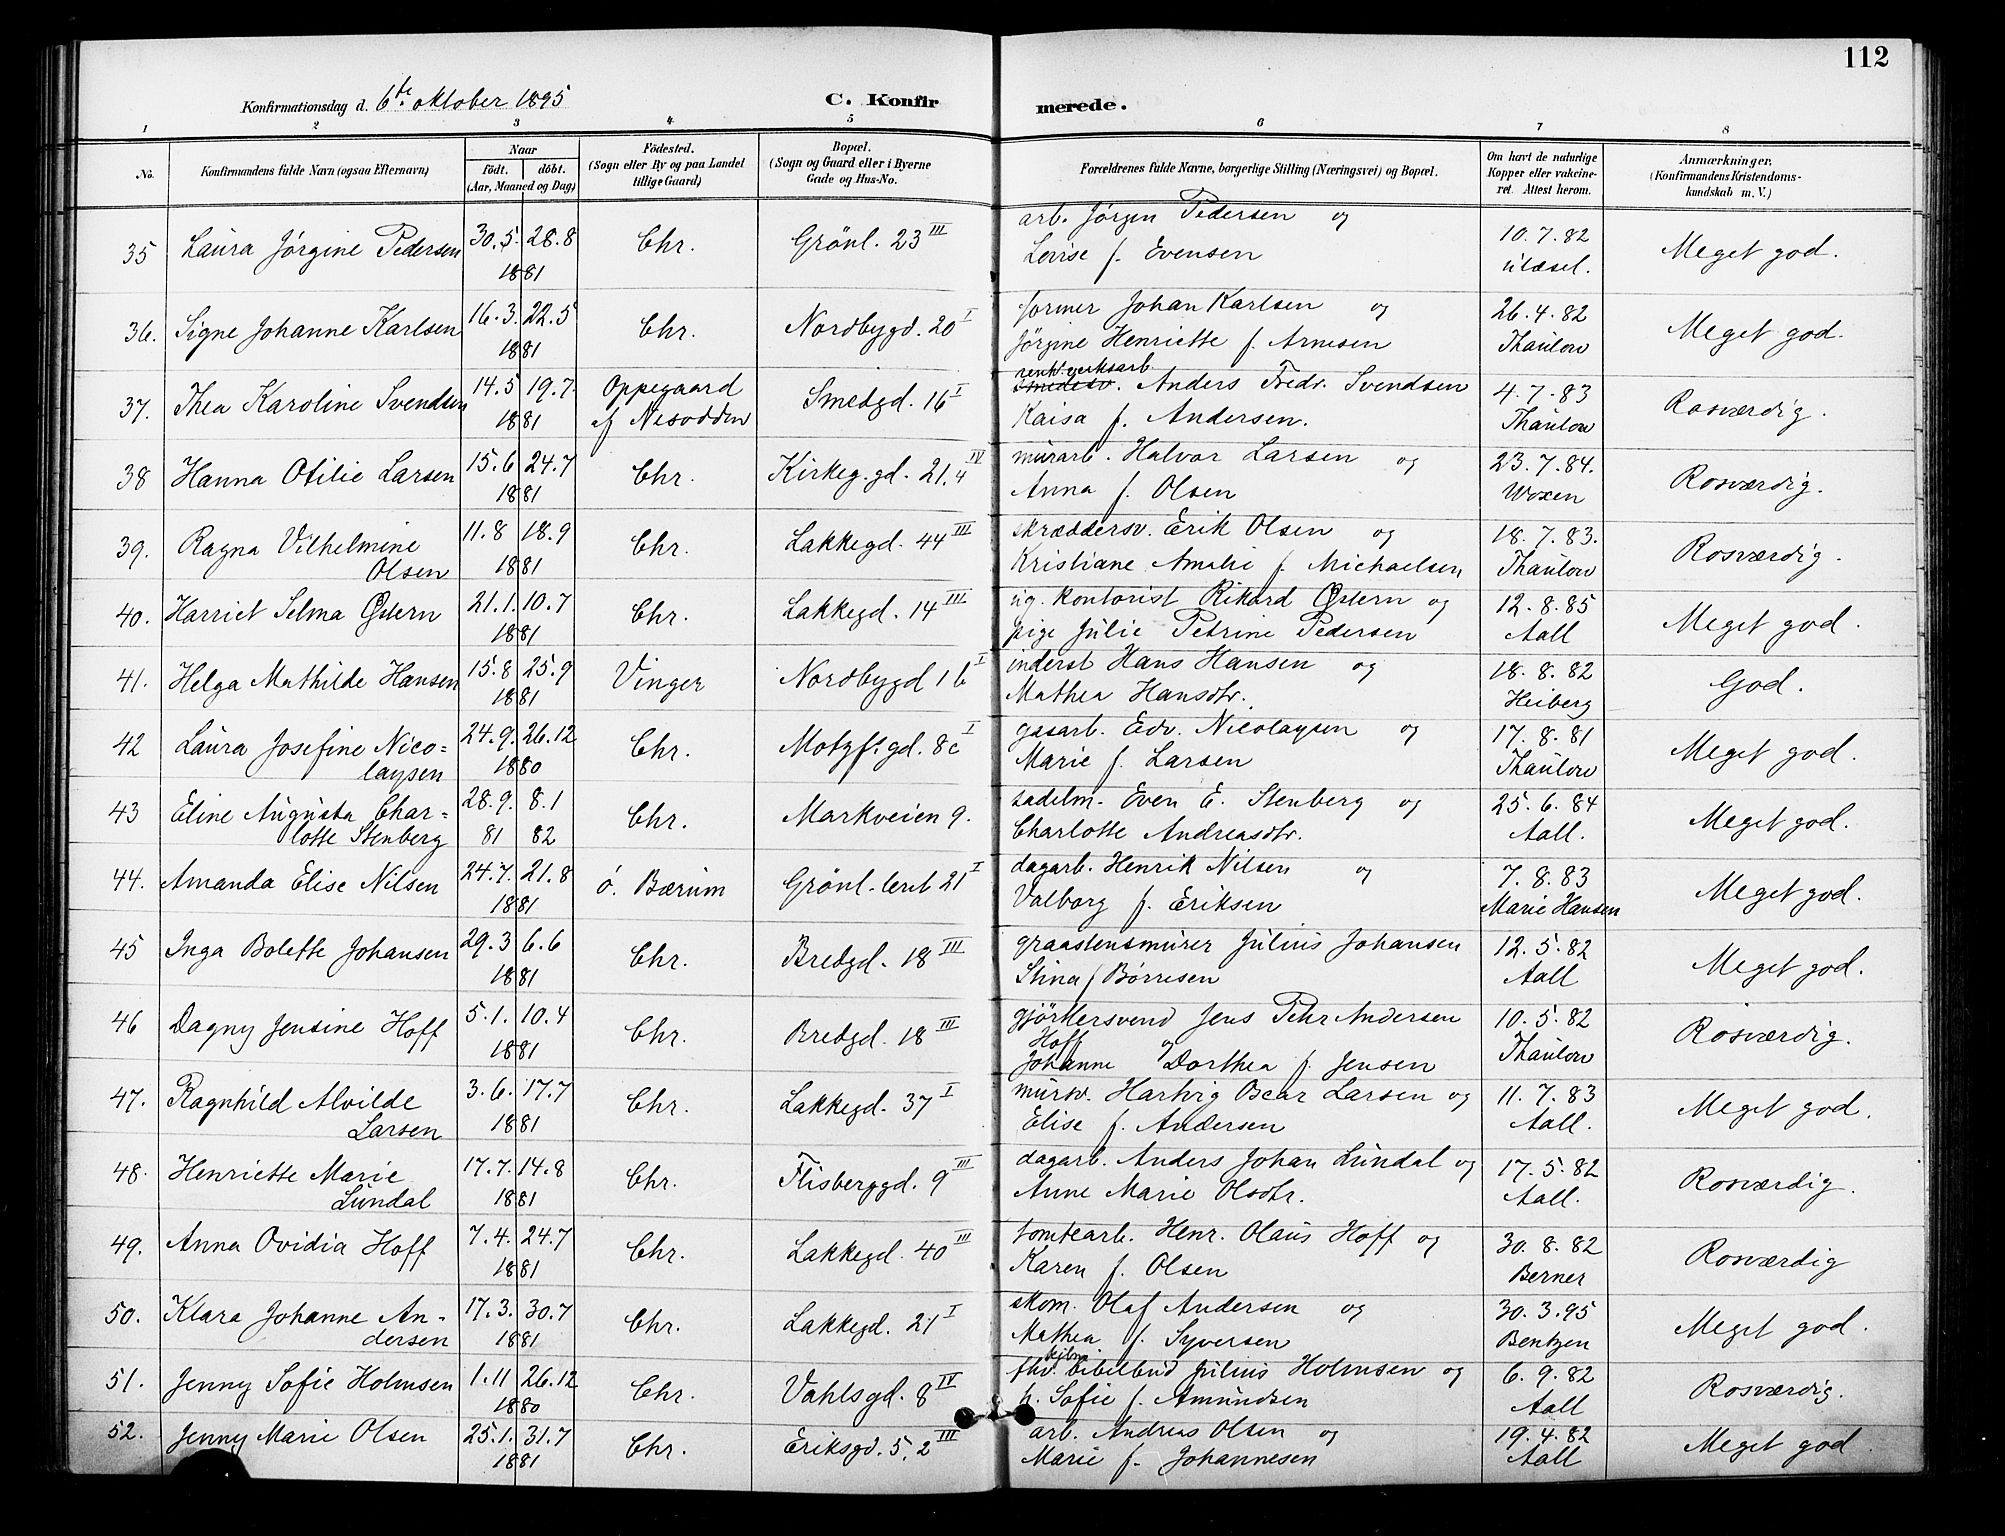 112
Konfirmationsdag d. 6te oktober 1895 C. Konfirmerede.
1 2 3 4 5 6 7 8
No. Konfirmandens fulde Navn (ogsaa Efternavn) Naar födt. döbt. (Aar, Maaned og Dag) Födested. (Sogn eller By og paa Landet tillige Gaard) Bopæl. (Sogn og Gaard eller i Byerne Gade og Hus-No. Forældrenes fulde Navne, borgerlige Stilling (Næringsvei) og Bopæl. Om havt de naturlige Kopper eller vakcineret. Attest herom. Anmærkninger. (Konfirmandens Kristendomskundskab m. V.)
35 Laura Jørgine Pedersen 30.5. 28.8 1881 Chr. Grönl. 23 III arb. Jørgen Pedersen og Lovise f. Evensen 10.7.82 ulæsel. Meget god.
36. Signe Johanne Karlsen 16.3. 22.5 1881 Chr. Nordbygd. 20 I former Johan Karlsen og Jørgine Henriette f. Arnesen 26.4.82 Thaulow Meget god.
37. Thea Karoline Svendsen 14.5 19.7. 1881 Oppegaard af Nesodden Smedgd. 16 I renh.verksarb. Anders Fredr. Svendsen Kaisa f. Andersen. 4.7.83 Thaulow Rosværdig.
38 Hanna Otilie Larsen 15.6 24.7 1881 Chr. Kirkeg.gd. 21,4 IV murarb. Halvor Larsen og Anna f. Olsen 23.7.84. Woxen Rosværdig.
39. Ragna Vilhelmine Olsen 11.8 18.9 1881 Chr. Lakkegd. 44 III skræddersv. Erik Olsen og Kristiane Amalie f. Michaelsen 18.7.83. Thaulow Rosværdig.
40. Harriet Selma Østern 21.1. 10.7 1881 Chr. Lakkegd. 14 III ug. kontorist Rikard Østern og pige Julie Petrine Pedersen 12.8.85 Aall Meget god.
41. Helga Mathilde Hansen 15.8 25.9 1881 Vinger Nordbygd 16 I inderst Hans Hansen og Mathea Hansdtr. 18.8.82 Heiberg God.
42 Laura Josefine Nico=laysen 24.9. 26.12 1880 Chr. Motzf.gd. 8c I gasarb. Edv. Nicolaysen og Marie f. Larsen 17.8.81 Thaulow Meget god.
43 Eline Augusta Char=lotte Stenberg 28.9. 81 8.1 82 Chr. Markveien 9. sadelm. Even E. Stenberg og Charlotte Andreasdtr. 25.6.84 Aall. Meget god.
44. Amanda Elise Nilsen 24.7. 21.8 1881 ö. Bærum Grönl.leret 21 I dagarb. Henrik Nilsen og Valborg f. Eriksen 7.8.83 Marie Hansen Meget god.
45 Inga Bolette Johansen 29.3 6.6 1881 Chr. Bredgd. 18 III graastensmurer Julius Johansen Stina f Børresen 12.5.82 Aall Meget god.
46 Dagny Jensine Hoff 5.1. 10.4 1881 Chr. Bredgd. 18 III gjörtlersvend Jens Pehr Andersen Hoff og Johanne Dorthea f. Jensen 10.5.82 Thaulow Rosværdig.
47. Ragnhild Alvilde Larsen 3.6. 17.7 1881 Chr. Lakkegd. 37 I mursv. Hartvig Oscar Larsen og Elise f. Andersen 11.7.83 Aall. Meget god.
48. Henriette Marie Lundal 17.7. 14.8 1881 Chr. Flisberggd. 9 III dagarb. Anders Johan Lundal og Anne Marie Olsdtr. 17.5.82 Aall. Rosværdig.
49. Anna Ovidia Hoff 7.4. 24.7 1881 Chr. Lakkegd. 40 III tomtearb. Henr. Olaus Hoff og Karen f. Olsen 30.8.82 Berner Rosværdig
50. Klara Johanne An-dersen 17.3. 30.7 1881 Chr. Lakkegd. 21 I skom. Olaf Andersen og Mathea f. Syversen 30.3.95 Bentzen Meget god.
51. Jenny Sofie Holmsen 1.11 26.12 1880 Chr. Vahlsgd. 8 IV fhv. Bibelbud Julius Holmsen og h. Sofie f. Amundsen 6.9.82 Aall Rosværdig.
52. Jenny Marie Olsen 25.1. 31.7 1881 Chr. Eriksgd. 5,2 III arb. Andreas Olsen og Marie f. Johannesen 19.4.82 Aall Meget god